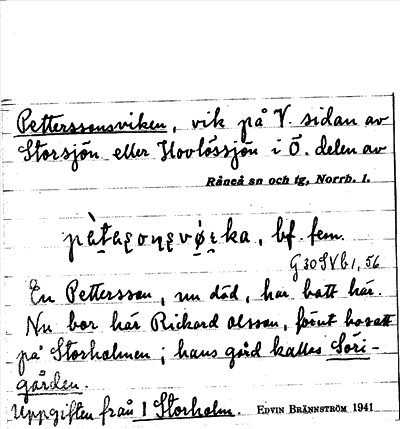 Petterssonsviken, vik på V. sidan av
Storsjön eller Hovlössjön i Ö. delen av
Råneå sn och tg, Norrb. l.
bf. fem.
G 30 SV b 1, 56
En Pettersson, nu död, har bott här.
Nu bor här Rickard Olsson, förut bosatt
på Storholmen; hans gård kallas Söri-
gården.
Uppgiften från 1 Storholm. EDVIN BRÄNNSTRÖM 1941